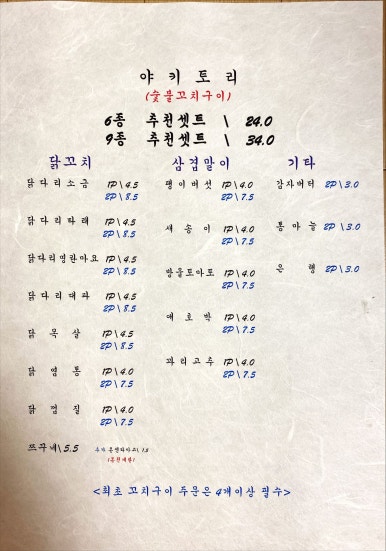 야키토리
(숯불꼬치구이)
6종 추천셋트 \ 24.0
9종 추천셋트 \ 34.0
닭꼬치
닭다리소금 1P\4.5
2P\8.5
닭다리타래 1P\4.5
2P\8.5
닭다리명란마요 1P\4.5
2P\8.5
닭다리대파 1P\4.5
2P\8.5
닭목살 1P\4.5
2P\8.5
닭염통 1P\4.0
2P\7.5
닭껍질 1P\4.0
2P\7.5
쯔꾸네\5.5
추가
삼겹말이
팽이버섯 1P\4.0
2P\7.5
새송이 1P\4.0
2P\7.5
방울토마토 1P\4.0
2P\7.5
애호박 1P\4.0
2P\7.5
꽈리고추 1P\4.0
2P\7.5
기타
감자버터 2P\3.0
통마늘 2P\3.0
은행 2P\3.0
<최초 꼬치구이 주문은 4개이상 필수>